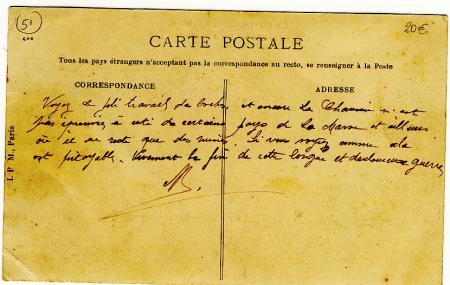 51
600
20€
CARTE POSTALE
Tous les pays étrangers n'acceptant pas la correspondance au recto, se renseigner à la Poste
CORRESPONDANCE
ADRESSE
Voyez le joli travail des boches, et encore la n'est
pas éprouvée à côté de certains pays de la Marne et ailleurs
où il ne reste que des ruines. Si vous voyez comme cela
est pitoyable. Vivement la fin de cette longue et douloureuse guerre
M.
I. P. M., Paris